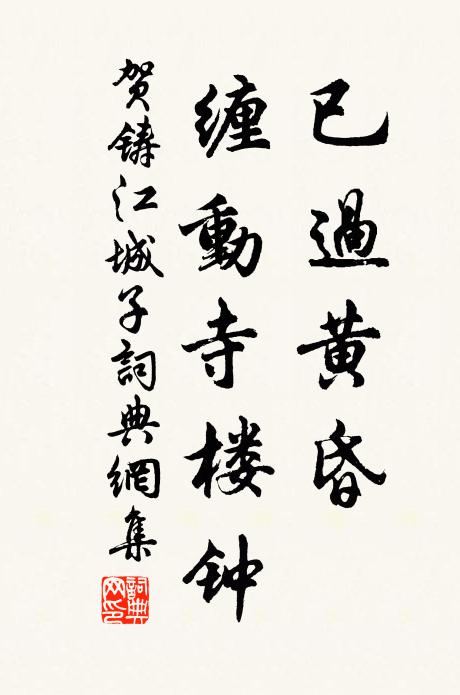 已過黄昏
缠動寺楼钟
贺铸江城子詞典網集
詞典网印